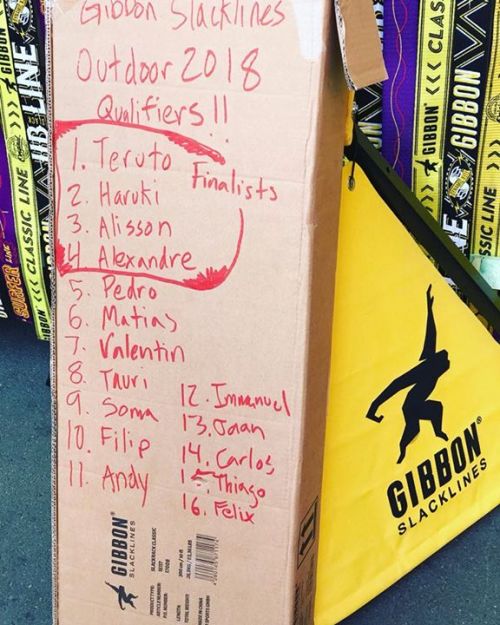 Gibbon Slacklines
Outdoor 2018
Qualifiers !!
Finalists
1. Teruto
2. Haruki
3. Alisson
4. Alexandre
5. Pedro
6. Matias
7. Valentin
8. Tauri
9. Soma
10. Filip
11. Andy
12. Immanuel
13. Jaan
14. Carlos
15. Thiago
16. Felix
GIBBON®
SLACKLINES
SLACKRACK CLASSIC
PRODUCT TYPE:
LENGTH
TOTAL WEIGHT:
MADE IN CHINA
GIBBON®
SLACKLINES
GIBBON
CLASSIC LINE
SURFER LINE
GIBBON <<< CLASSIC LINE
GIBBON <<< CLAS
GIBBON
LINE